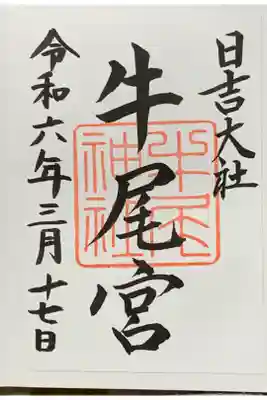 日吉大社
牛尾宮
牛尾神社
令和六年三月十七日